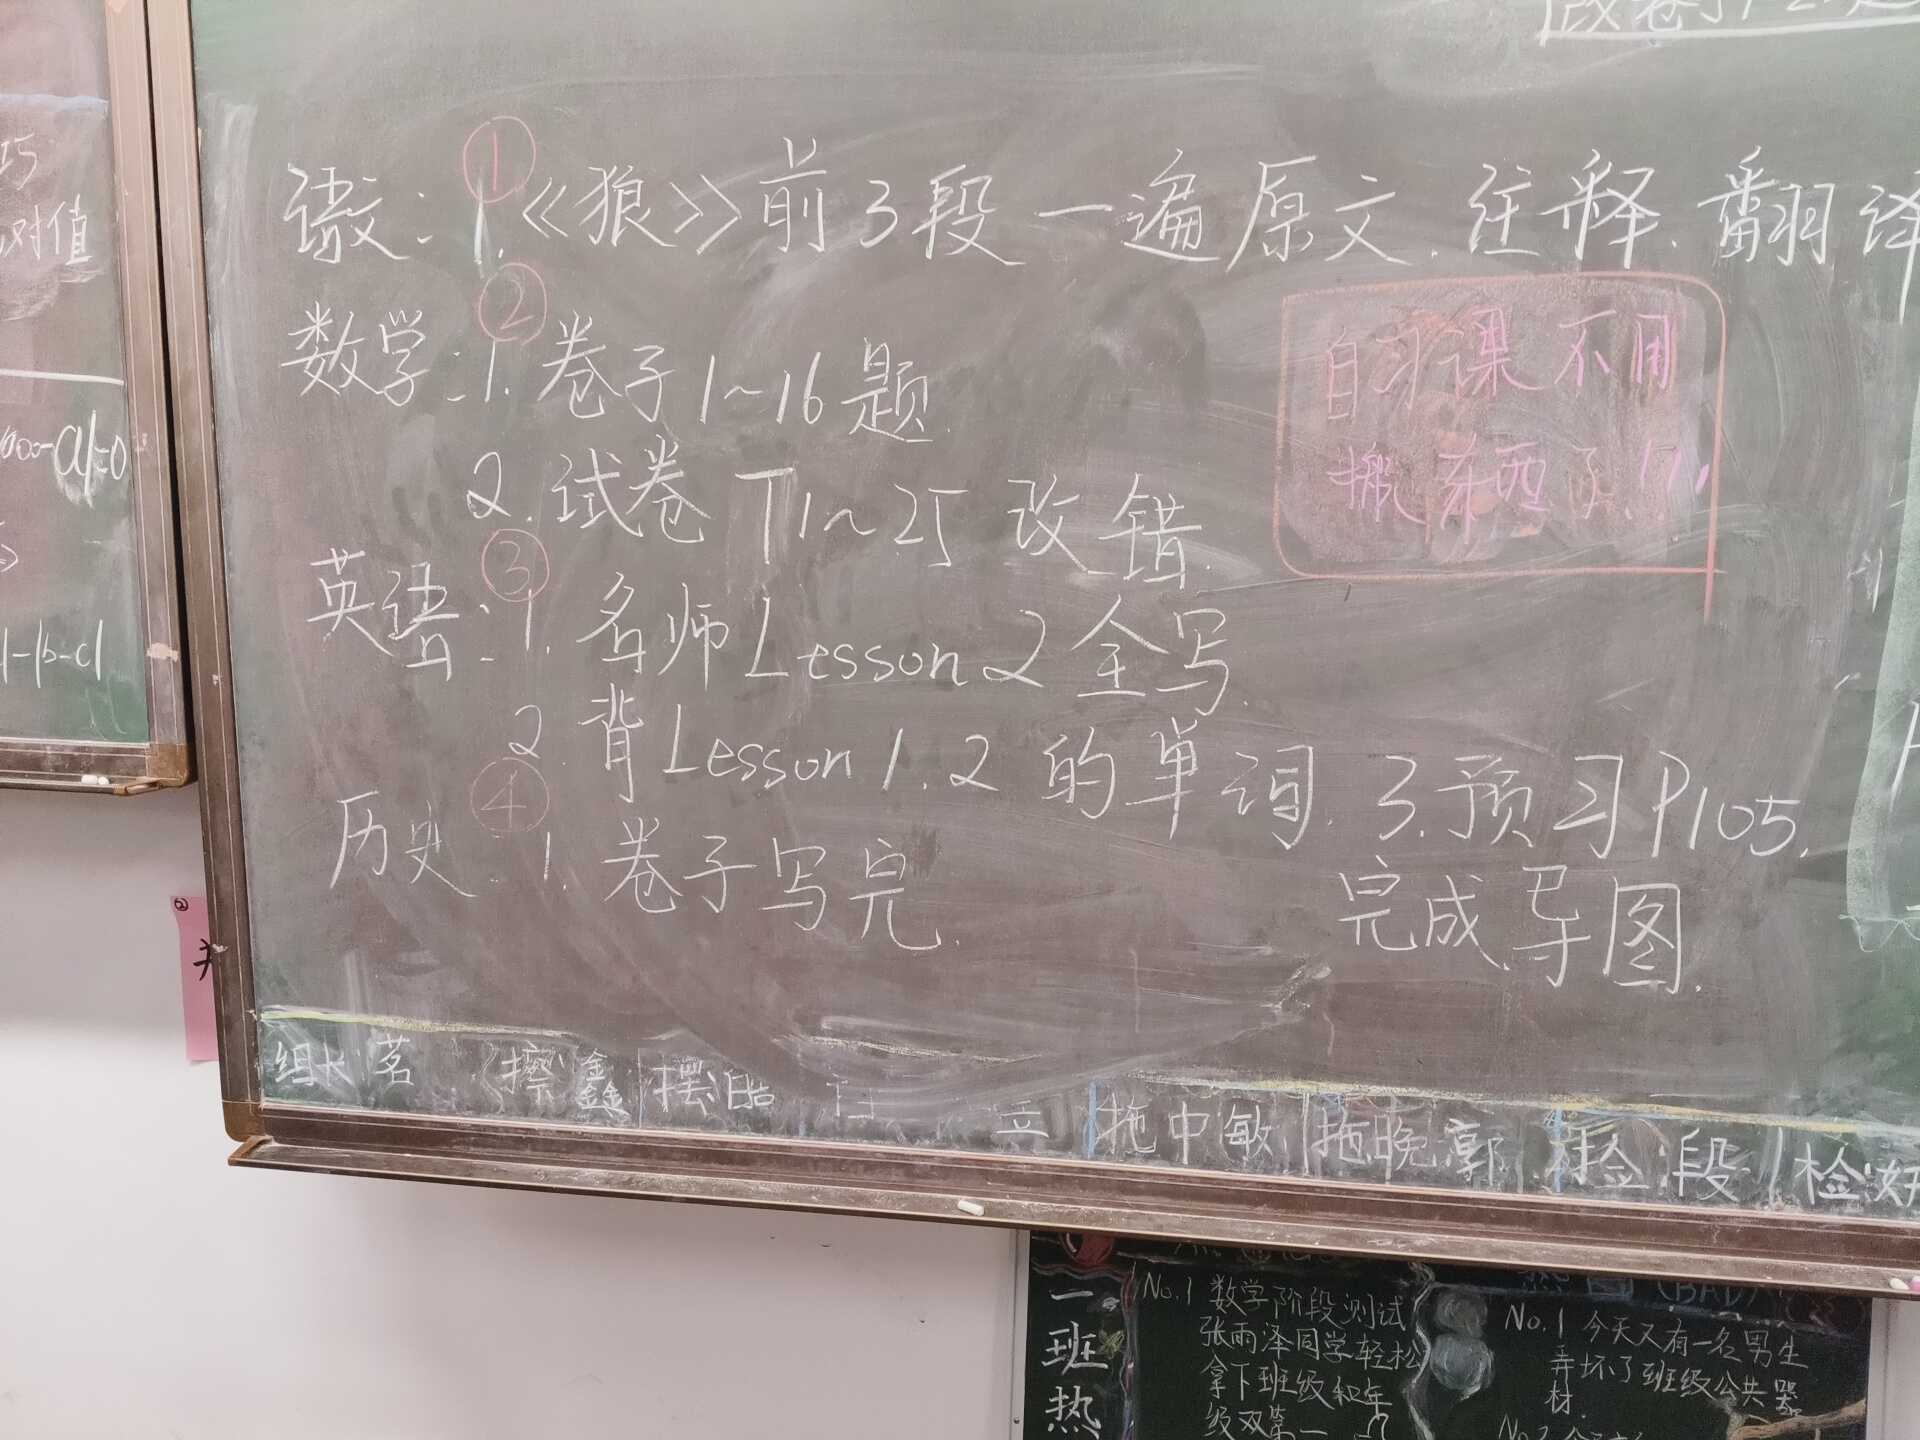 语文:①1.《狼》前3段一遍原文.注释.翻译
数学:②1.卷子1~16题.
2.试卷T1~25改错.
自习课不用
搬东西了!!
英语:③1.名师Lesson2全写.
2.背Lesson1.2的单词.3.预习P105.
完成导图.
历史:④1.卷子写完.
组长 茗 擦 鑫 摆 皓
拖中敏 拖晚郭 捡段 检
对值
-a|=0
|-|b-c|
②
一班热
No.1 数学阶段测试
张雨泽同学轻松
拿下班级和年
级双第一
(BAD)
No.1 今天又有一名男生
弄坏了班级公共器
材.